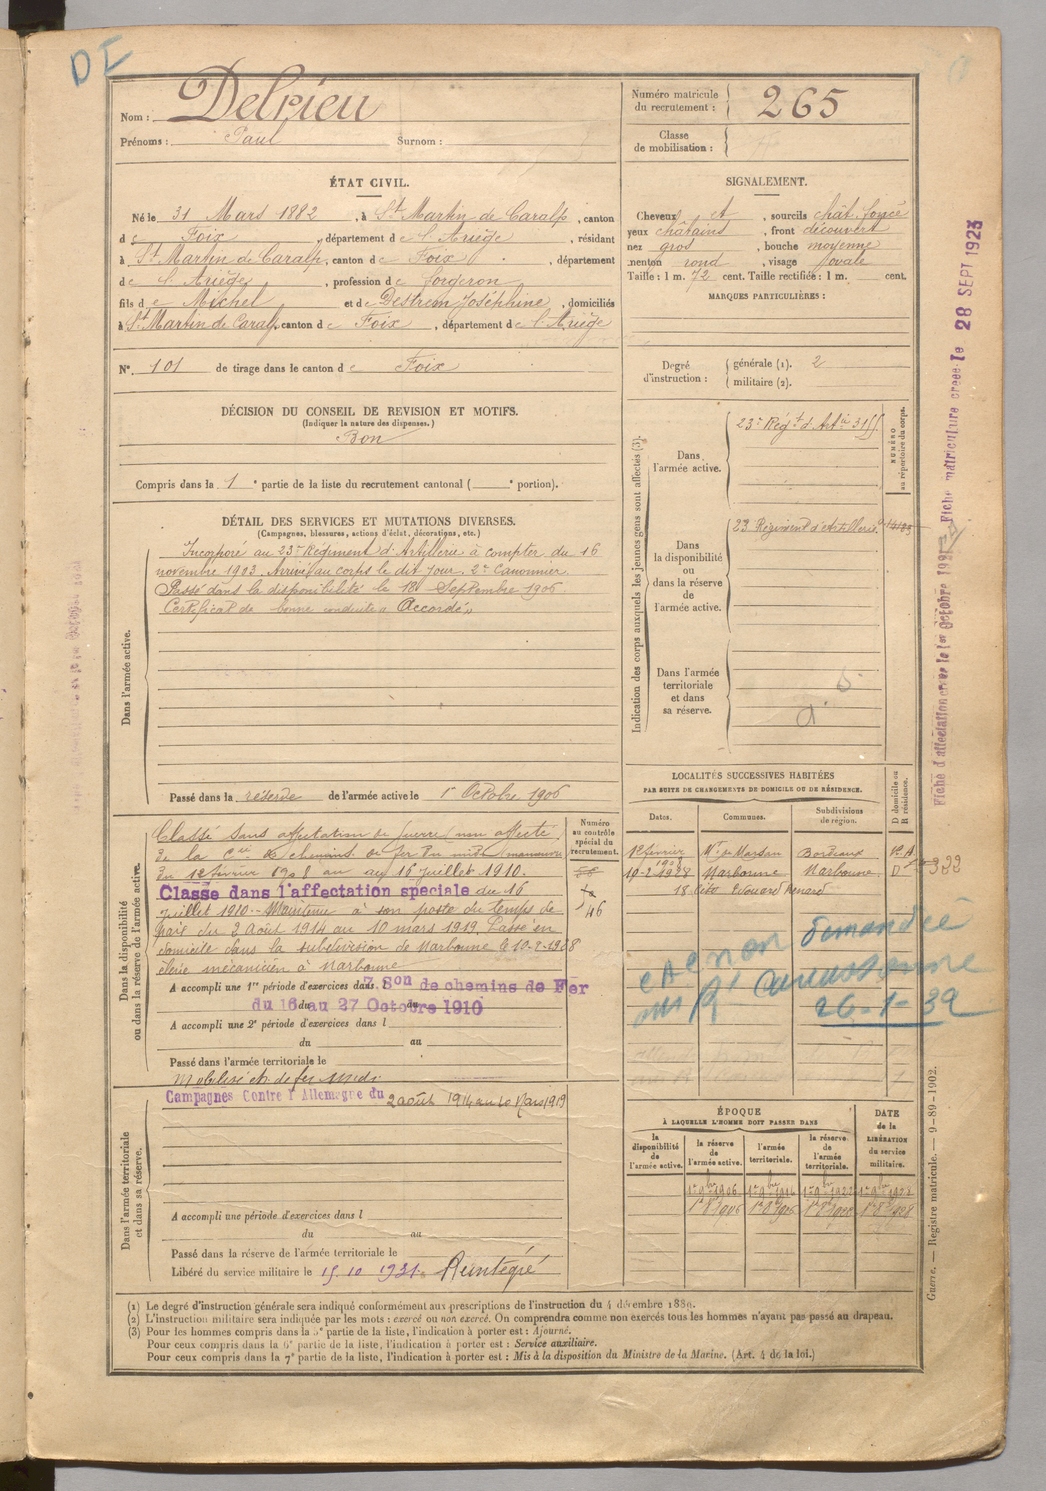 DE
Nom : Delrieu
Prénoms : Paul Surnom :
Numéro matricule du recrutement : 265
Classe de mobilisation :
ÉTAT CIVIL.
Né le 31 Mars 1882, à St Martin de Caralp, canton
de Foix, département de l'Ariège, résidant
à St Martin de Caralp, canton de Foix, département
de l'Ariège, profession de forgeron
fils de Michel et de Destrem Joséphine, domiciliés
à St Martin de Caralp, canton de Foix, département de l'Ariège
N° 101 de tirage dans le canton de Foix
SIGNALEMENT.
Cheveux et, sourcils chât. foncé
yeux châtains, front découvert
nez gros, bouche moyenne
menton rond, visage ovale
Taille : 1 m. 72 cent. Taille rectifiée : 1 m. cent.
MARQUES PARTICULIÈRES :
Degré d'instruction : générale (1). 2
militaire (2).
DÉCISION DU CONSEIL DE REVISION ET MOTIFS.
(Indiquer la nature des dispenses.)
Bon
Compris dans la 1e partie de la liste du recrutement cantonal ( e portion).
DÉTAIL DES SERVICES ET MUTATIONS DIVERSES.
(Campagnes, blessures, actions d'éclat, décorations, etc.)
Dans l'armée active.
Incorporé au 23e Régiment d'Artillerie à compter du 16
novembre 1903. Arrivé au corps le dit jour. 2e Canonnier.
Passé dans la disponibilité le 18 Septembre 1906.
Certificat de bonne conduite "Accordé"
Passé dans la réserve de l'armée active le 1er Octobre 1906
Indication des corps auxquels les jeunes gens sont affectés (3).
NUMÉRO au répertoire du corps.
Dans l'armée active.
23e Régt d'Artie 31
Dans la disponibilité ou dans la réserve de l'armée active.
23 Régiment d'Artillerie
Dans l'armée territoriale et dans sa réserve.
Dans la disponibilité ou dans la réserve de l'armée active.
Classé sans affectation de guerre, non affecté
de la Cie de chemins de fer du midi
du 12 février 1908 au 16 juillet 1910.
Classé dans l'affectation spéciale du 16
juillet 1910. Maintenu à son poste du temps de
paix du 2 Août 1914 au 10 mars 1919. Passé en
domicile dans la subdivision de Narbonne le 10-2-1928
élève mécanicien à Narbonne
Numéro au contrôle spécial du recrutement.
46
A accompli une 1re période d'exercices dans 7 Son de chemins de Fer
du 16 au 27 Octobre 1910
A accompli une 2e période d'exercices dans l
du au
Passé dans l'armée territoriale le
Mobilisé ch. de fer Midi
Dans l'armée territoriale et dans sa réserve.
Campagnes Contre l'Allemagne du 2 août 1914 au 10 Mars 1919
A accompli une période d'exercices dans l
du au
Passé dans la réserve de l'armée territoriale le
Libéré du service militaire le 15.10 1931. Réintégré
LOCALITÉS SUCCESSIVES HABITÉES
PAR SUITE DE CHANGEMENTS DE DOMICILE OU DE RÉSIDENCE.
Dates. Communes. Subdivisions de région. D domicile ou R résidence.
12 février 1908 Mt de Marsan Bordeaux
10-2-1928 Narbonne Narbonne D
18 Cité Edouard Renard
non demandée
Carcassonne
26-1-32
ÉPOQUE
À LAQUELLE L'HOMME DOIT PASSER DANS
DATE de la LIBÉRATION du service militaire.
la disponibilité de l'armée active. la réserve de l'armée active. l'armée territoriale. la réserve de l'armée territoriale.
(1) Le degré d'instruction générale sera indiqué conformément aux prescriptions de l'instruction du 4 décembre 1889.
(2) L'instruction militaire sera indiquée par les mots : exercé ou non exercé. On comprendra comme non exercés tous les hommes n'ayant pas passé au drapeau.
(3) Pour les hommes compris dans la 5e partie de la liste, l'indication à porter est : Ajourné.
Pour ceux compris dans la 6e partie de la liste, l'indication à porter est : Service auxiliaire.
Pour ceux compris dans la 7e partie de la liste, l'indication à porter est : Mis à la disposition du Ministre de la Marine. (Art. 4 de la loi.)
Guerre. — Registre matricule. — 9-89-1902.
Fiche matriculaire créée le 28 SEPT 1923
Fiche d'affectation créée le 1er Octobre